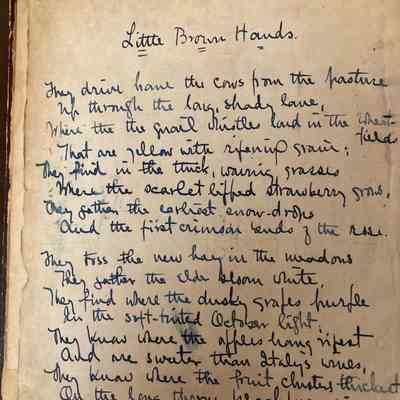 Little Brown Hands.
They drive home the cows from the pasture
Up through the long, shady lane,
Where the the quail whistles loud in the wheat-
fields
That are yellow with ripening grain;
They find in the thick, waving grasses
Where the scarlet lipped strawberry grows,
They gather the earliest snow-drops
And the first crimson buds of the rose.
They toss the new hay in the meadows
They gather the elder bloom white,
They find where the dusky grapes purple
In the soft-tinted October light,
They know where the apples hang ripest
And are sweeter than Italy's wines,
They know where the fruit clusters thickest
On the long, thorny blackberry